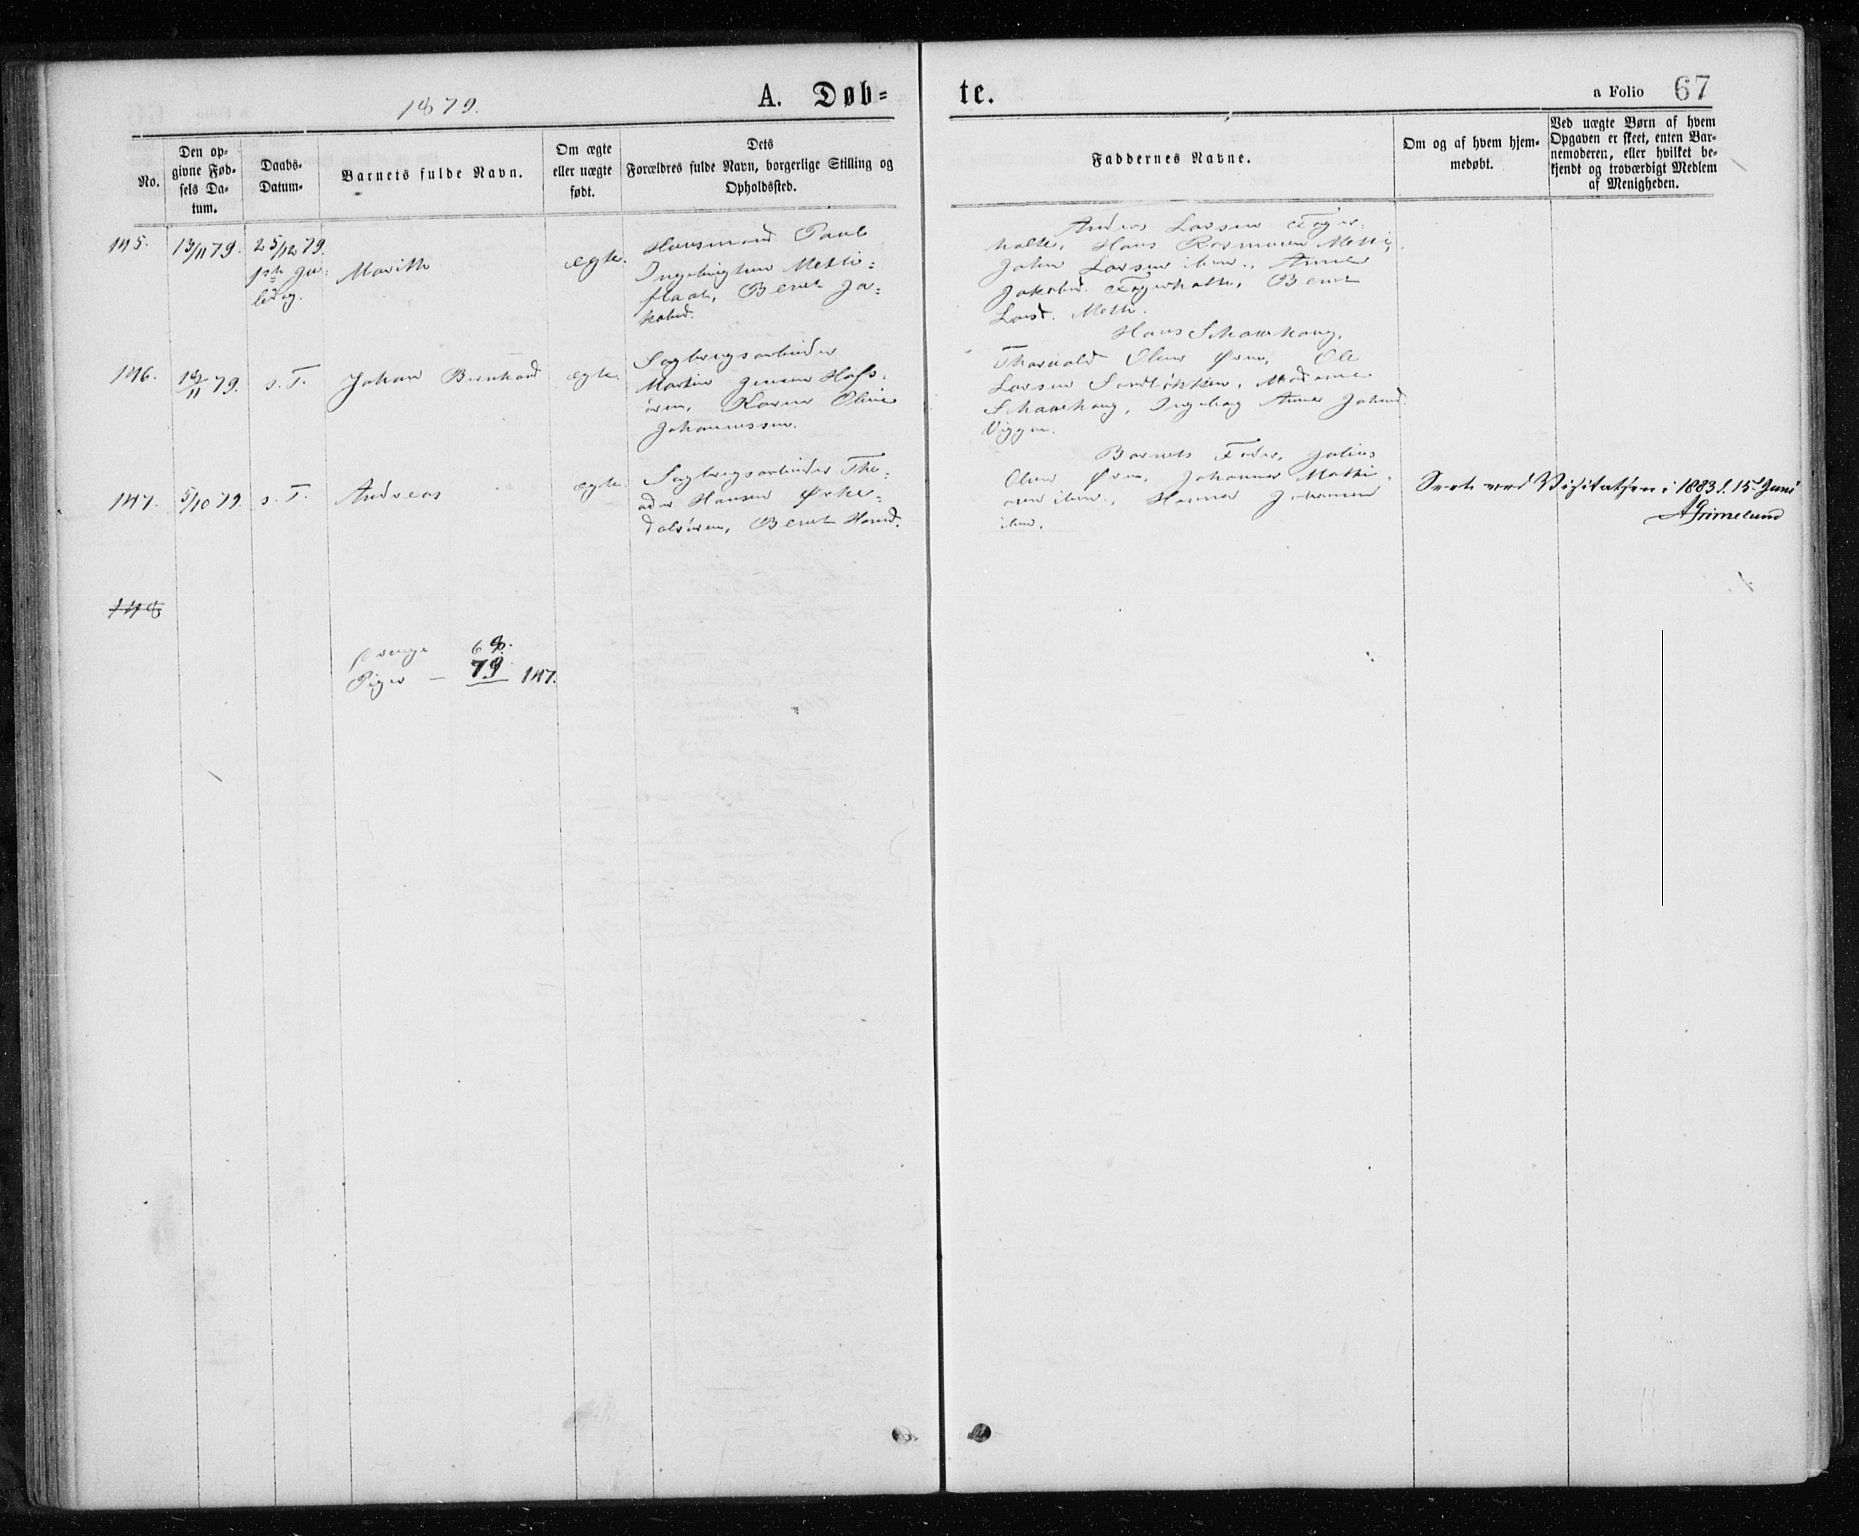 1879.
A. Døb=
te.
a Folio 67
No.
Den op-
givne Fød-
sels Da-
tum.
Daabs-
Datum-
Barnets fulde Navn.
Om ægte
eller uægte
født.
Dets
Forældres fulde Navn, borgerlige Stilling og
Opholdssted.
Faddernes Navne.
Om og af hvem hjem-
medøbt.
Ved uægte Børn af hvem
Opgaven er skeet, enten Bar-
nemoderen, eller hvilket be-
kjendt og troværdigt Medlem
af Menigheden.
145.
13/11 79.
25/12 79.
1ste Ju=
ledag.
Marith
ægte.
Husmand Paul
Ingebrigtsen Metli=
flaat, Beret Ja=
kobsd.
Anders Larsen Fager=
holt, Hans Rasmusen Metli,
John Larsen ibm., Anne
Jakobsd. Fagerholt, Beret
Larsd. Metli.
146.
18/11 79.
s. T.
Johan Bernhard
ægte.
Sagbrugsarbeider
Martin Jensen Hofs=
øren, Karen Oline
Johannessen.
Hans Schawhaug,
Thorvald Olsen Øren, Ole
Larsen Sandløkken, Madame
Schawhaug, Ingebog Anna Johnsd.
Viggen.
147.
5/10 79.
s. T.
Andreas
ægte.
Sagbrugsarbeider The=
odor Hansen Orke=
dalsøren, Beret Hansd.
Barnets Fader, Julius
Olsen Øren, Johannes Mathi=
sen ibm., Hanna Johansen
ibm.
Seet ved Visitatsen i 1883 d. 15de Juni
AGrimelund
148
Drenge 68.
Piger — 79 147.